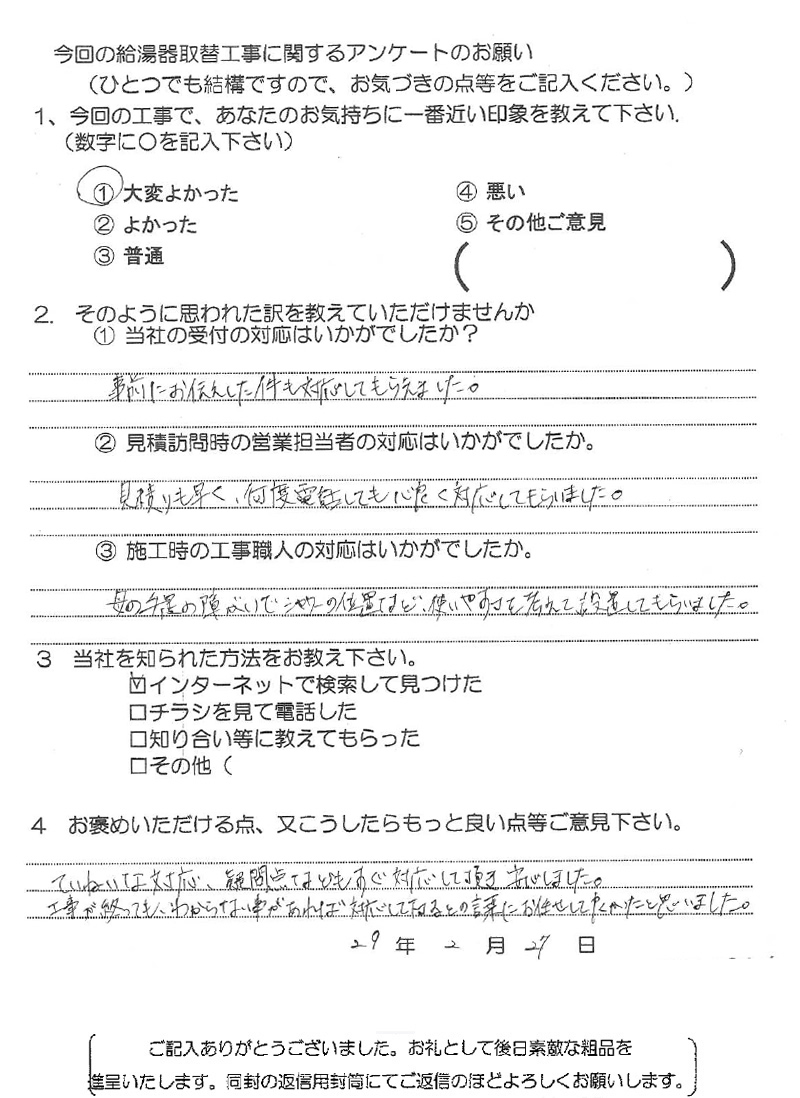 今回の給湯器取替工事に関するアンケートのお願い
（ひとつでも結構ですので、お気づきの点等をご記入ください。）
1、今回の工事で、あなたのお気持ちに一番近い印象を教えて下さい.
（数字に〇を記入下さい）
① 大変よかった
② よかった
③ 普通
④ 悪い
⑤ その他ご意見
( )
2. そのように思われた訳を教えていただけませんか
① 当社の受付の対応はいかがでしたか？
事前にお伝えした件も対応してもらえました。
② 見積訪問時の営業担当者の対応はいかがでしたか。
見積りも早く、何度電話しても心良く対応してもらいました。
③ 施工時の工事職人の対応はいかがでしたか。
母の手足の障がいでシャワーの位置など、使いやすさを考えて設置してもらいました。
3 当社を知られた方法をお教え下さい。
☑インターネットで検索して見つけた
□チラシを見て電話した
□知り合い等に教えてもらった
□その他（
4 お褒めいただける点、又こうしたらもっと良い点等ご意見下さい。
ていねいな対応、疑問点などもすぐ対応して頂き安心しました。
工事が終っても、わからない事があれば対応して下さるとの言葉にお任せして良かったと思いました。
29 年 2 月 27 日
ご記入ありがとうございました。お礼として後日素敵な粗品を
進呈いたします。同封の返信用封筒にてご返信のほどよろしくお願いします。